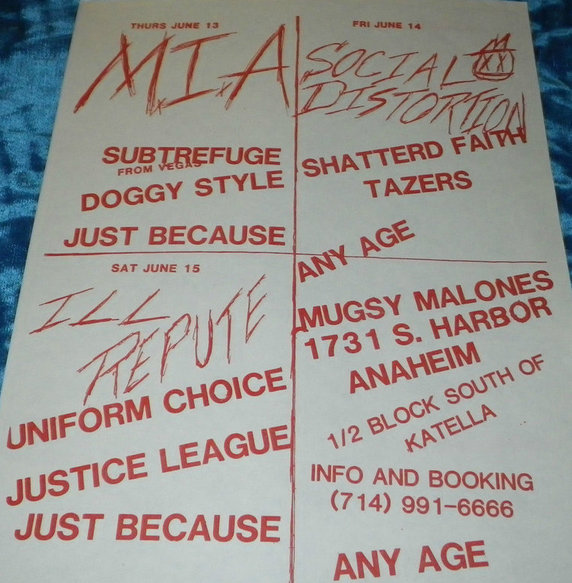 THURS JUNE 13
M.I.A
SUBTREFUGE
FROM VEGAS
DOGGY STYLE
JUST BECAUSE
FRI JUNE 14
SOCIAL
DISTORTION
SHATTERD FAITH
TAZERS
ANY AGE
SAT JUNE 15
ILL
REPUTE
UNIFORM CHOICE
JUSTICE LEAGUE
JUST BECAUSE
MUGSY MALONES
1731 S. HARBOR
ANAHEIM
1/2 BLOCK SOUTH OF
KATELLA
INFO AND BOOKING
(714) 991-6666
ANY AGE